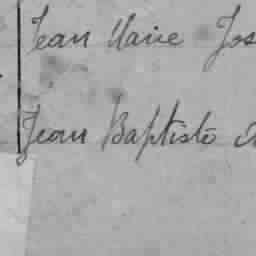 Jean Marie Jos
Jean Baptiste